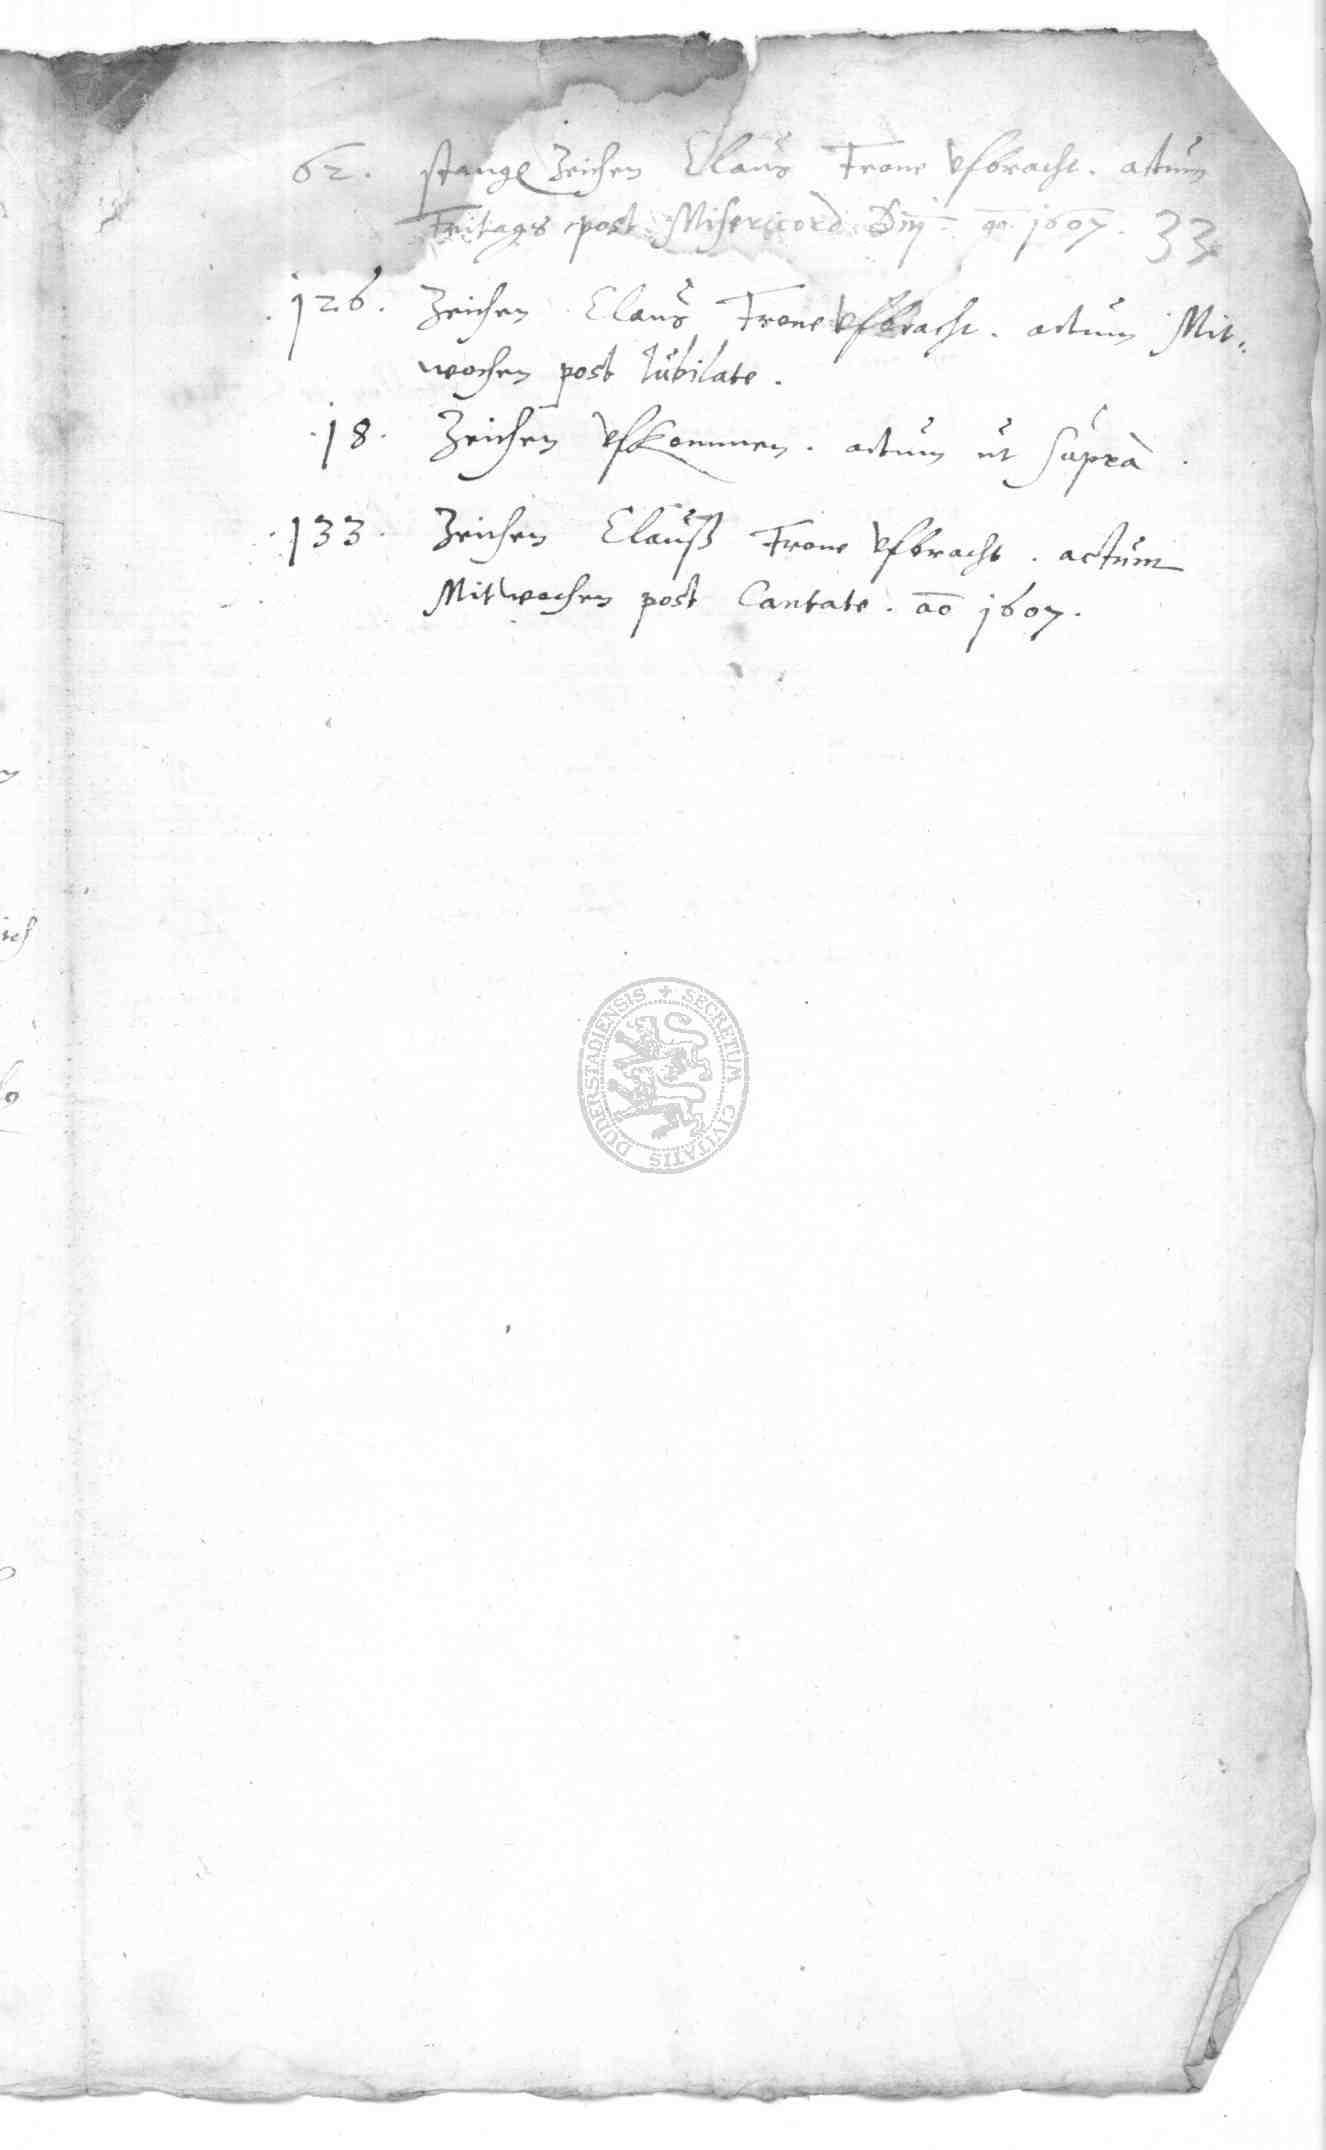 62. stange Zeichen Claus Frone ufbracht. actum
Fritags post Misericord: Dnj. ao. 1607. 33
126. Zeichen Claus Frone ufbracht. actum Mit=
wochen post Iubilate.
18. Zeichen ufkommen. actum ut supra.
133. Zeichen Clauß Frone ufbracht. actum
Mitwochen post Cantate. ao 1607.
DUDERSTADIENSIS + SECRETUM CIVITATIS